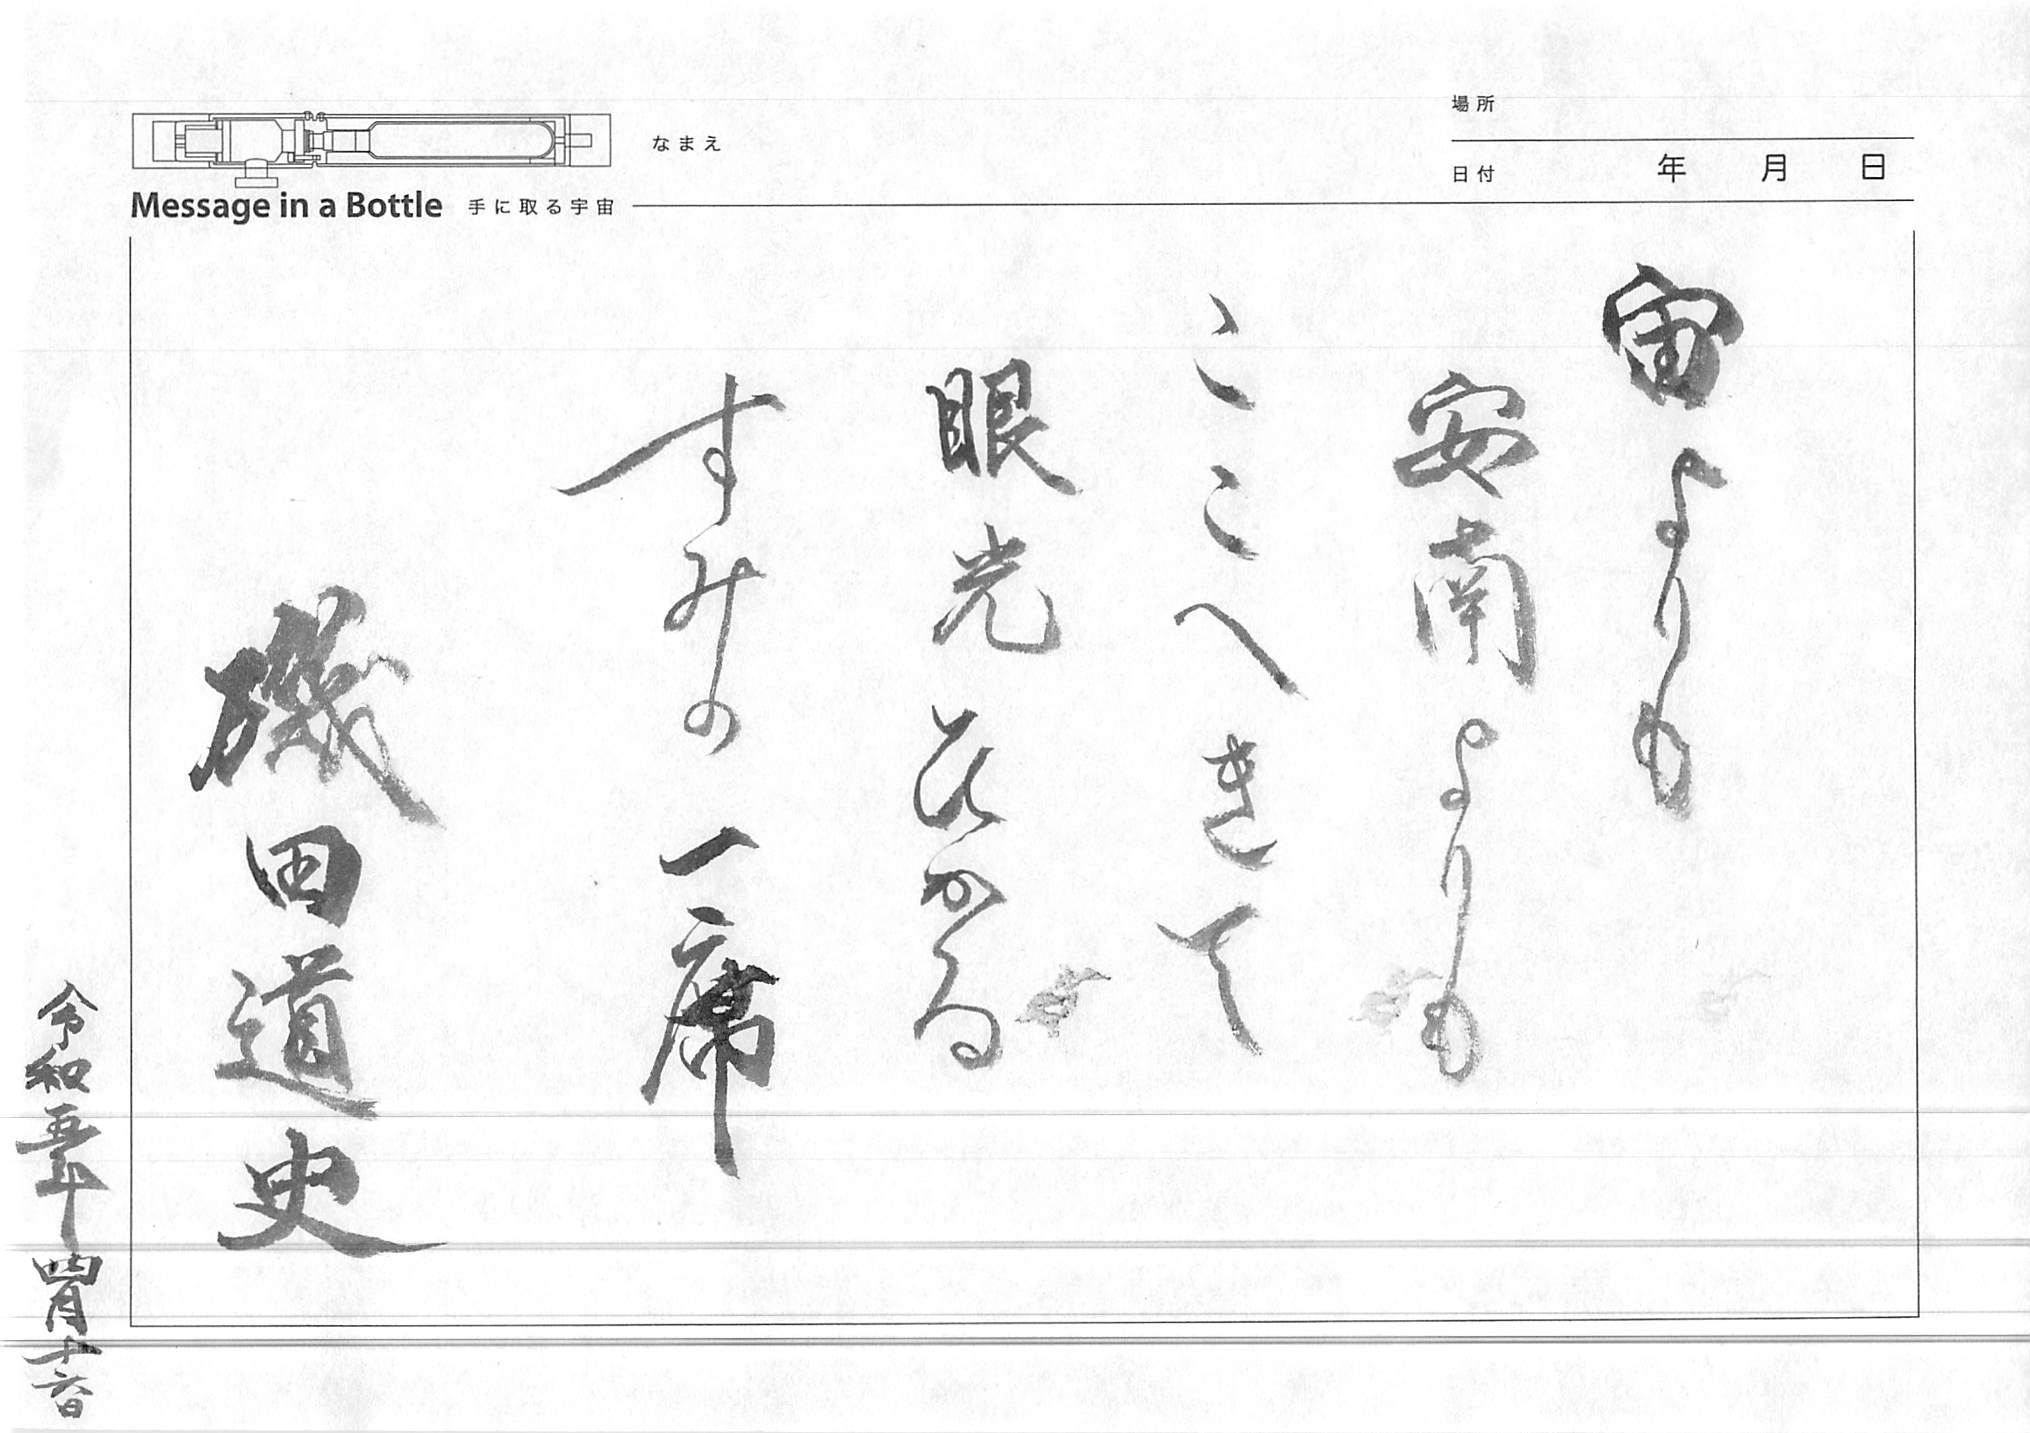 場所
なまえ
日付 年 月 日
Message in a Bottle 手に取る宇宙
宙よりも
安南よりも
ここへきて
眼光ひかる
すみの一席
磯田道史
令和五年四月十六日